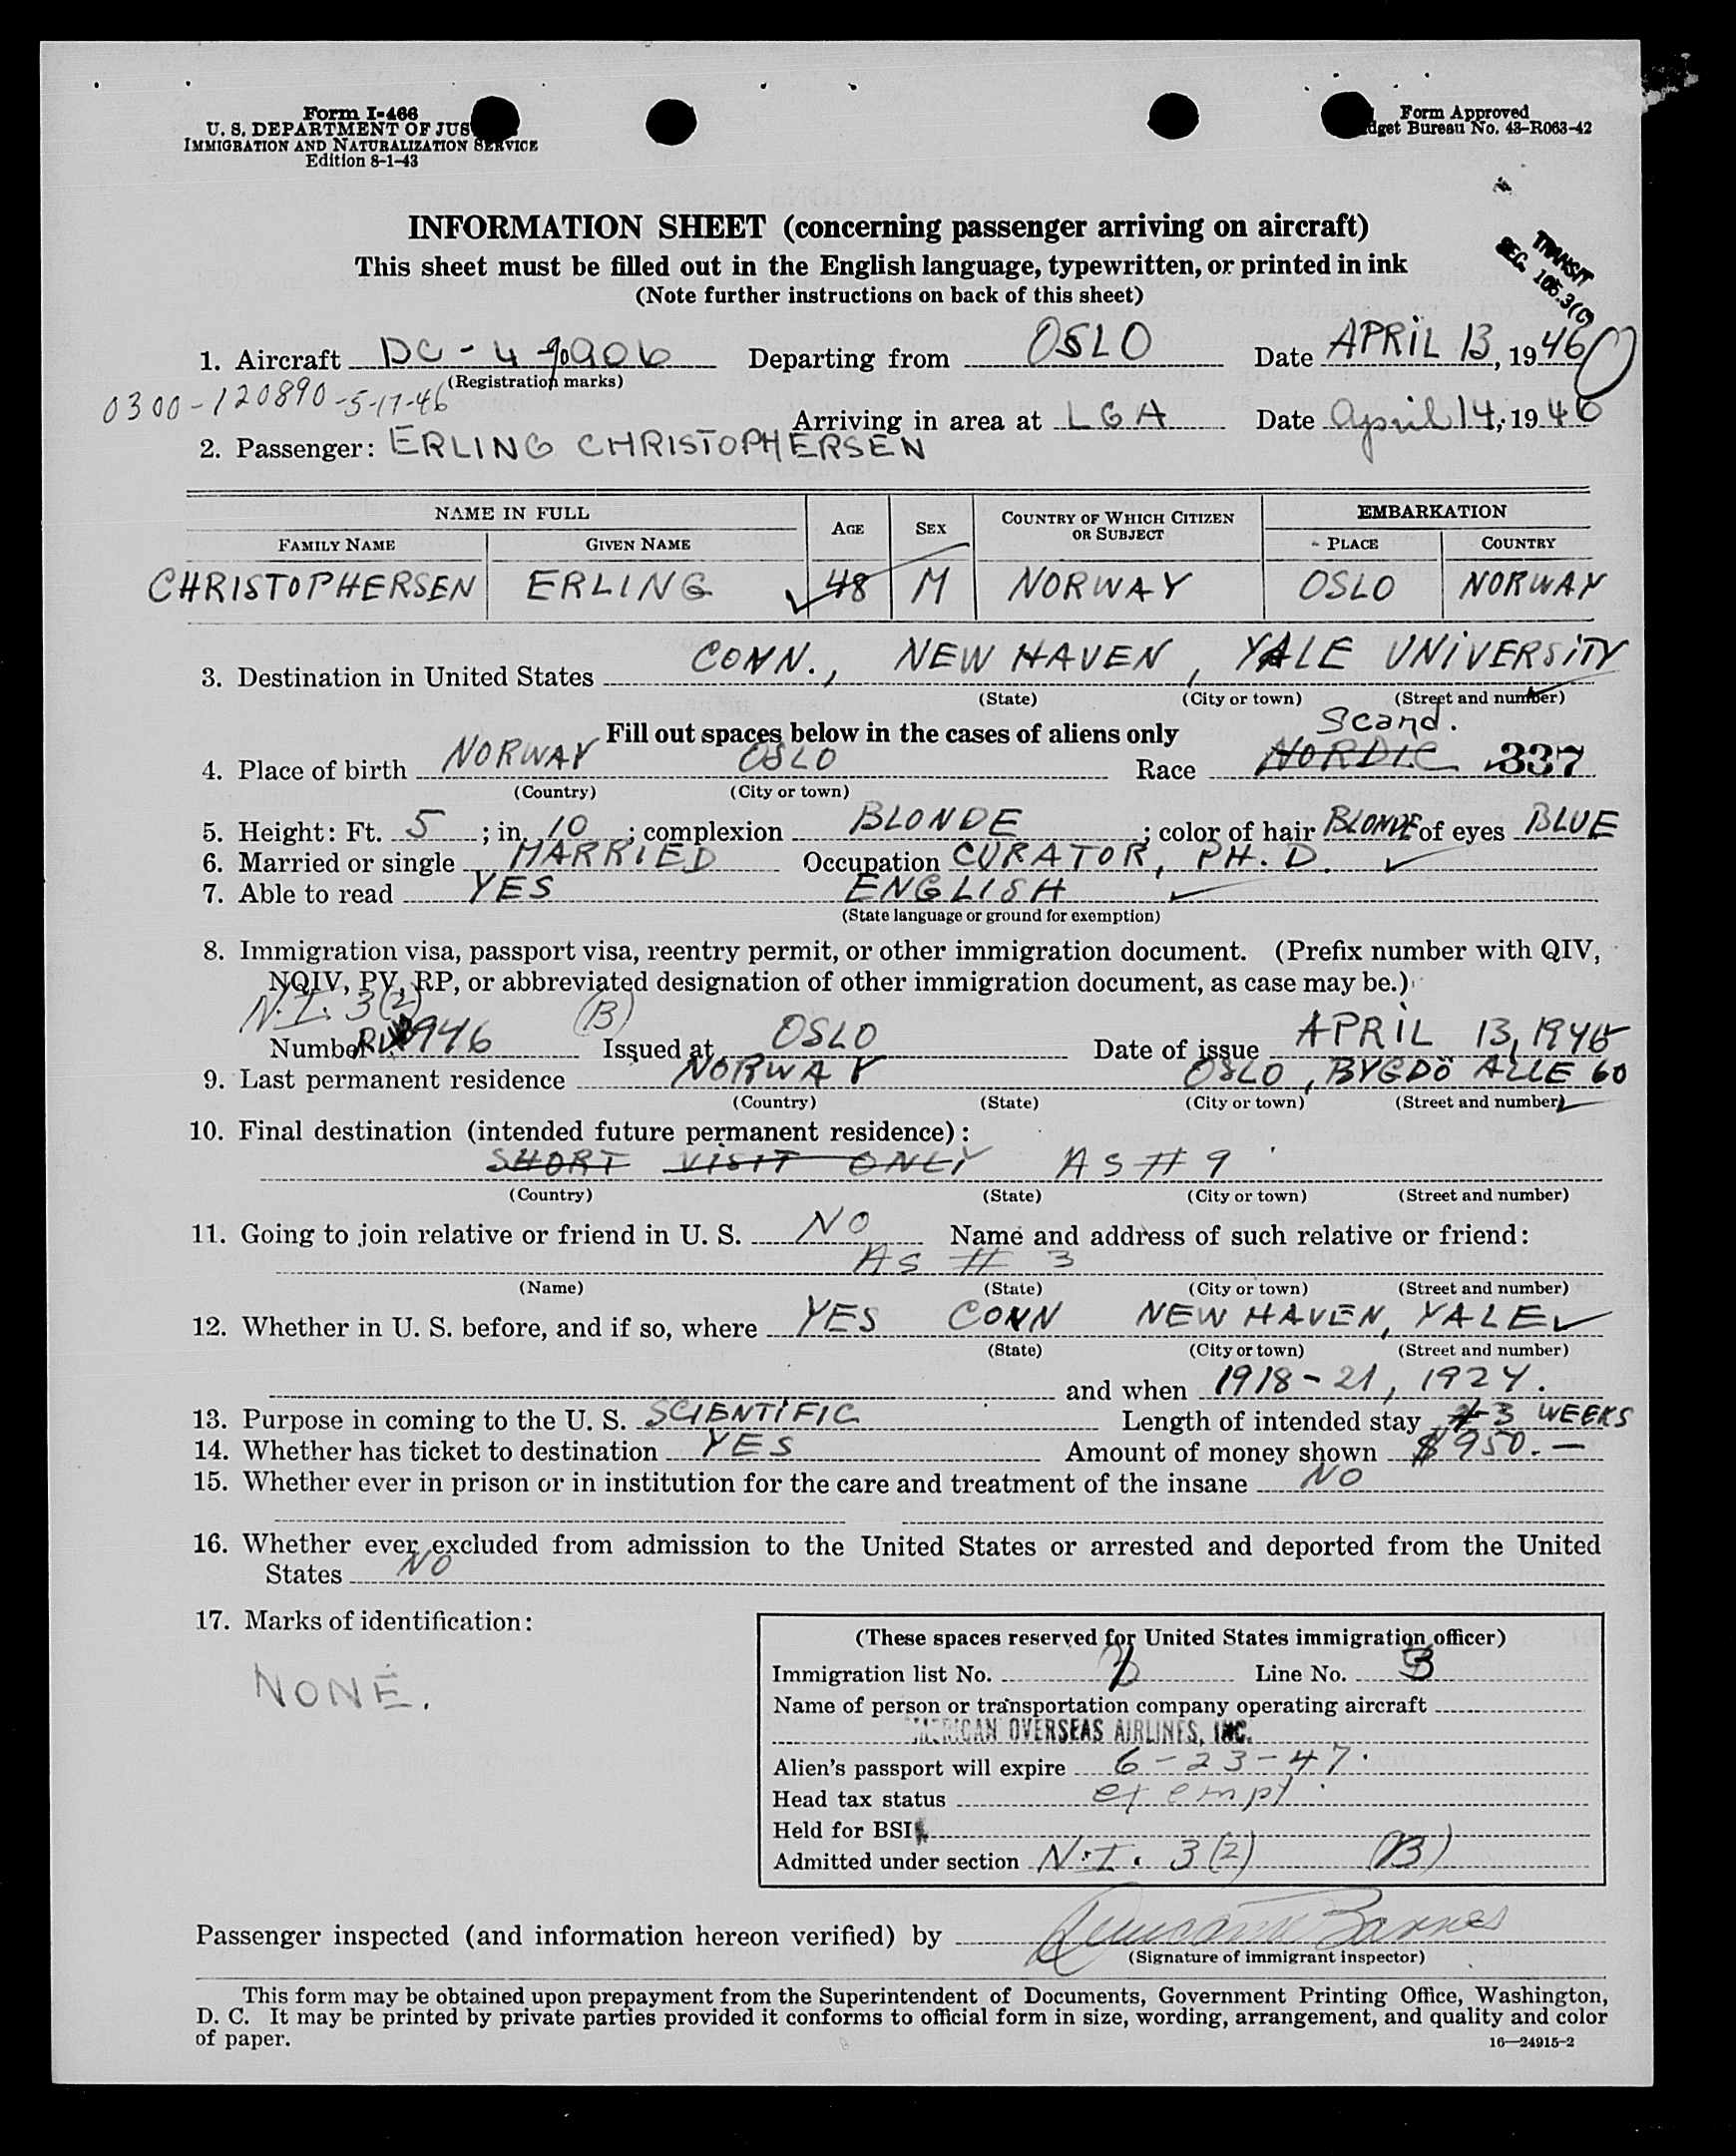 Form I-466
U. S. DEPARTMENT OF JUS
IMMIGRATION AND NATURALIZATION SERVICE
Edition 8-1-43
Form Approved
dget Bureau No. 43-R063-42
INFORMATION SHEET (concerning passenger arriving on aircraft)
This sheet must be filled out in the English language, typewritten, or printed in ink
(Note further instructions on back of this sheet)
TRANSIT
SEC. 105.3(C)
1. Aircraft DC-4-90906 Departing from OSLO Date APRIL 13, 1946
(Registration marks)
0300-120890-5-17-46
Arriving in area at LGA Date April 14, 1946
2. Passenger: ERLING CHRISTOPHERSEN
NAME IN FULL AGE SEX COUNTRY OF WHICH CITIZEN OR SUBJECT EMBARKATION
FAMILY NAME GIVEN NAME PLACE COUNTRY
CHRISTOPHERSEN ERLING 48 M NORWAY OSLO NORWAY
3. Destination in United States CONN., NEW HAVEN, YALE UNIVERSITY
(State) (City or town) (Street and number)
Fill out spaces below in the cases of aliens only
Scand.
4. Place of birth NORWAY OSLO Race NORDIC 337
(Country) (City or town)
5. Height: Ft. 5; in. 10; complexion BLONDE; color of hair BLONDE of eyes BLUE
6. Married or single MARRIED Occupation CURATOR, PH. D.
7. Able to read YES ENGLISH
(State language or ground for exemption)
8. Immigration visa, passport visa, reentry permit, or other immigration document. (Prefix number with QIV,
NQIV, PV, RP, or abbreviated designation of other immigration document, as case may be.)
N.I. 3(2) (B)
Number 946 Issued at OSLO Date of issue APRIL 13, 1946
9. Last permanent residence NORWAY OSLO, BYGDÖ ALLE 60
(Country) (State) (City or town) (Street and number)
10. Final destination (intended future permanent residence):
SHORT VISIT ONLY AS # 9
(Country) (State) (City or town) (Street and number)
11. Going to join relative or friend in U. S. NO Name and address of such relative or friend:
AS # 3
(Name) (State) (City or town) (Street and number)
12. Whether in U. S. before, and if so, where YES CONN NEW HAVEN, YALE
(State) (City or town) (Street and number)
and when 1918-21, 1924.
13. Purpose in coming to the U. S. SCIENTIFIC Length of intended stay 3 WEEKS
14. Whether has ticket to destination YES Amount of money shown $950.—
15. Whether ever in prison or in institution for the care and treatment of the insane NO
16. Whether ever excluded from admission to the United States or arrested and deported from the United
States NO
17. Marks of identification:
NONE.
(These spaces reserved for United States immigration officer)
Immigration list No. Line No. 3
Name of person or transportation company operating aircraft
AMERICAN OVERSEAS AIRLINES, INC.
Alien's passport will expire 6-23-47.
Head tax status exempt
Held for BSI
Admitted under section N.I. 3(2) (B)
Passenger inspected (and information hereon verified) by Barnes
(Signature of immigrant inspector)
This form may be obtained upon prepayment from the Superintendent of Documents, Government Printing Office, Washington,
D. C. It may be printed by private parties provided it conforms to official form in size, wording, arrangement, and quality and color
of paper.
16—24915-2